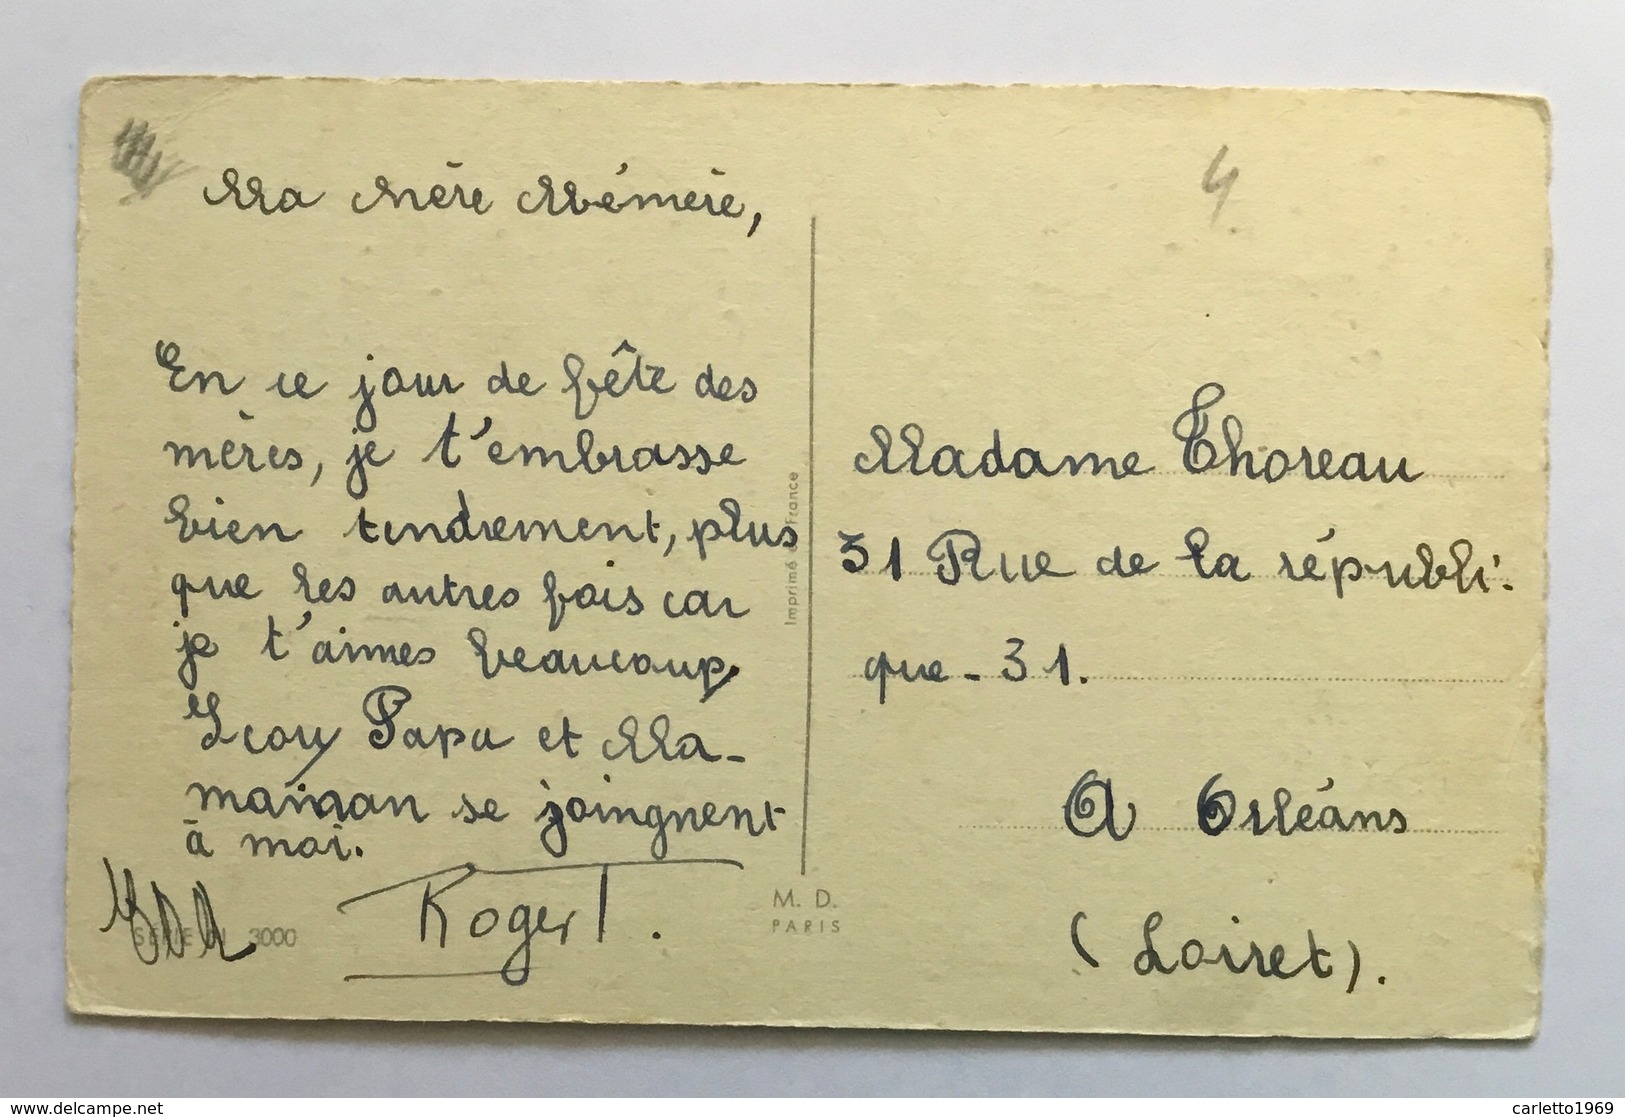 Ma Mère Mémère,
En ce jour de fête des
mères, je t'embrasse
bien tendrement, plus
que les autres fois car
je t'aimes beaucoup,
Papa et Ma-
maman se joingnent
à moi.
Roger T.
SERIE 3000
Imprimé France
M. D.
PARIS
4
Madame Thoreau
31 Rue de la républi-
que - 31.
A Orléans
(Loiret).
www.delcampe.net
carletto1969